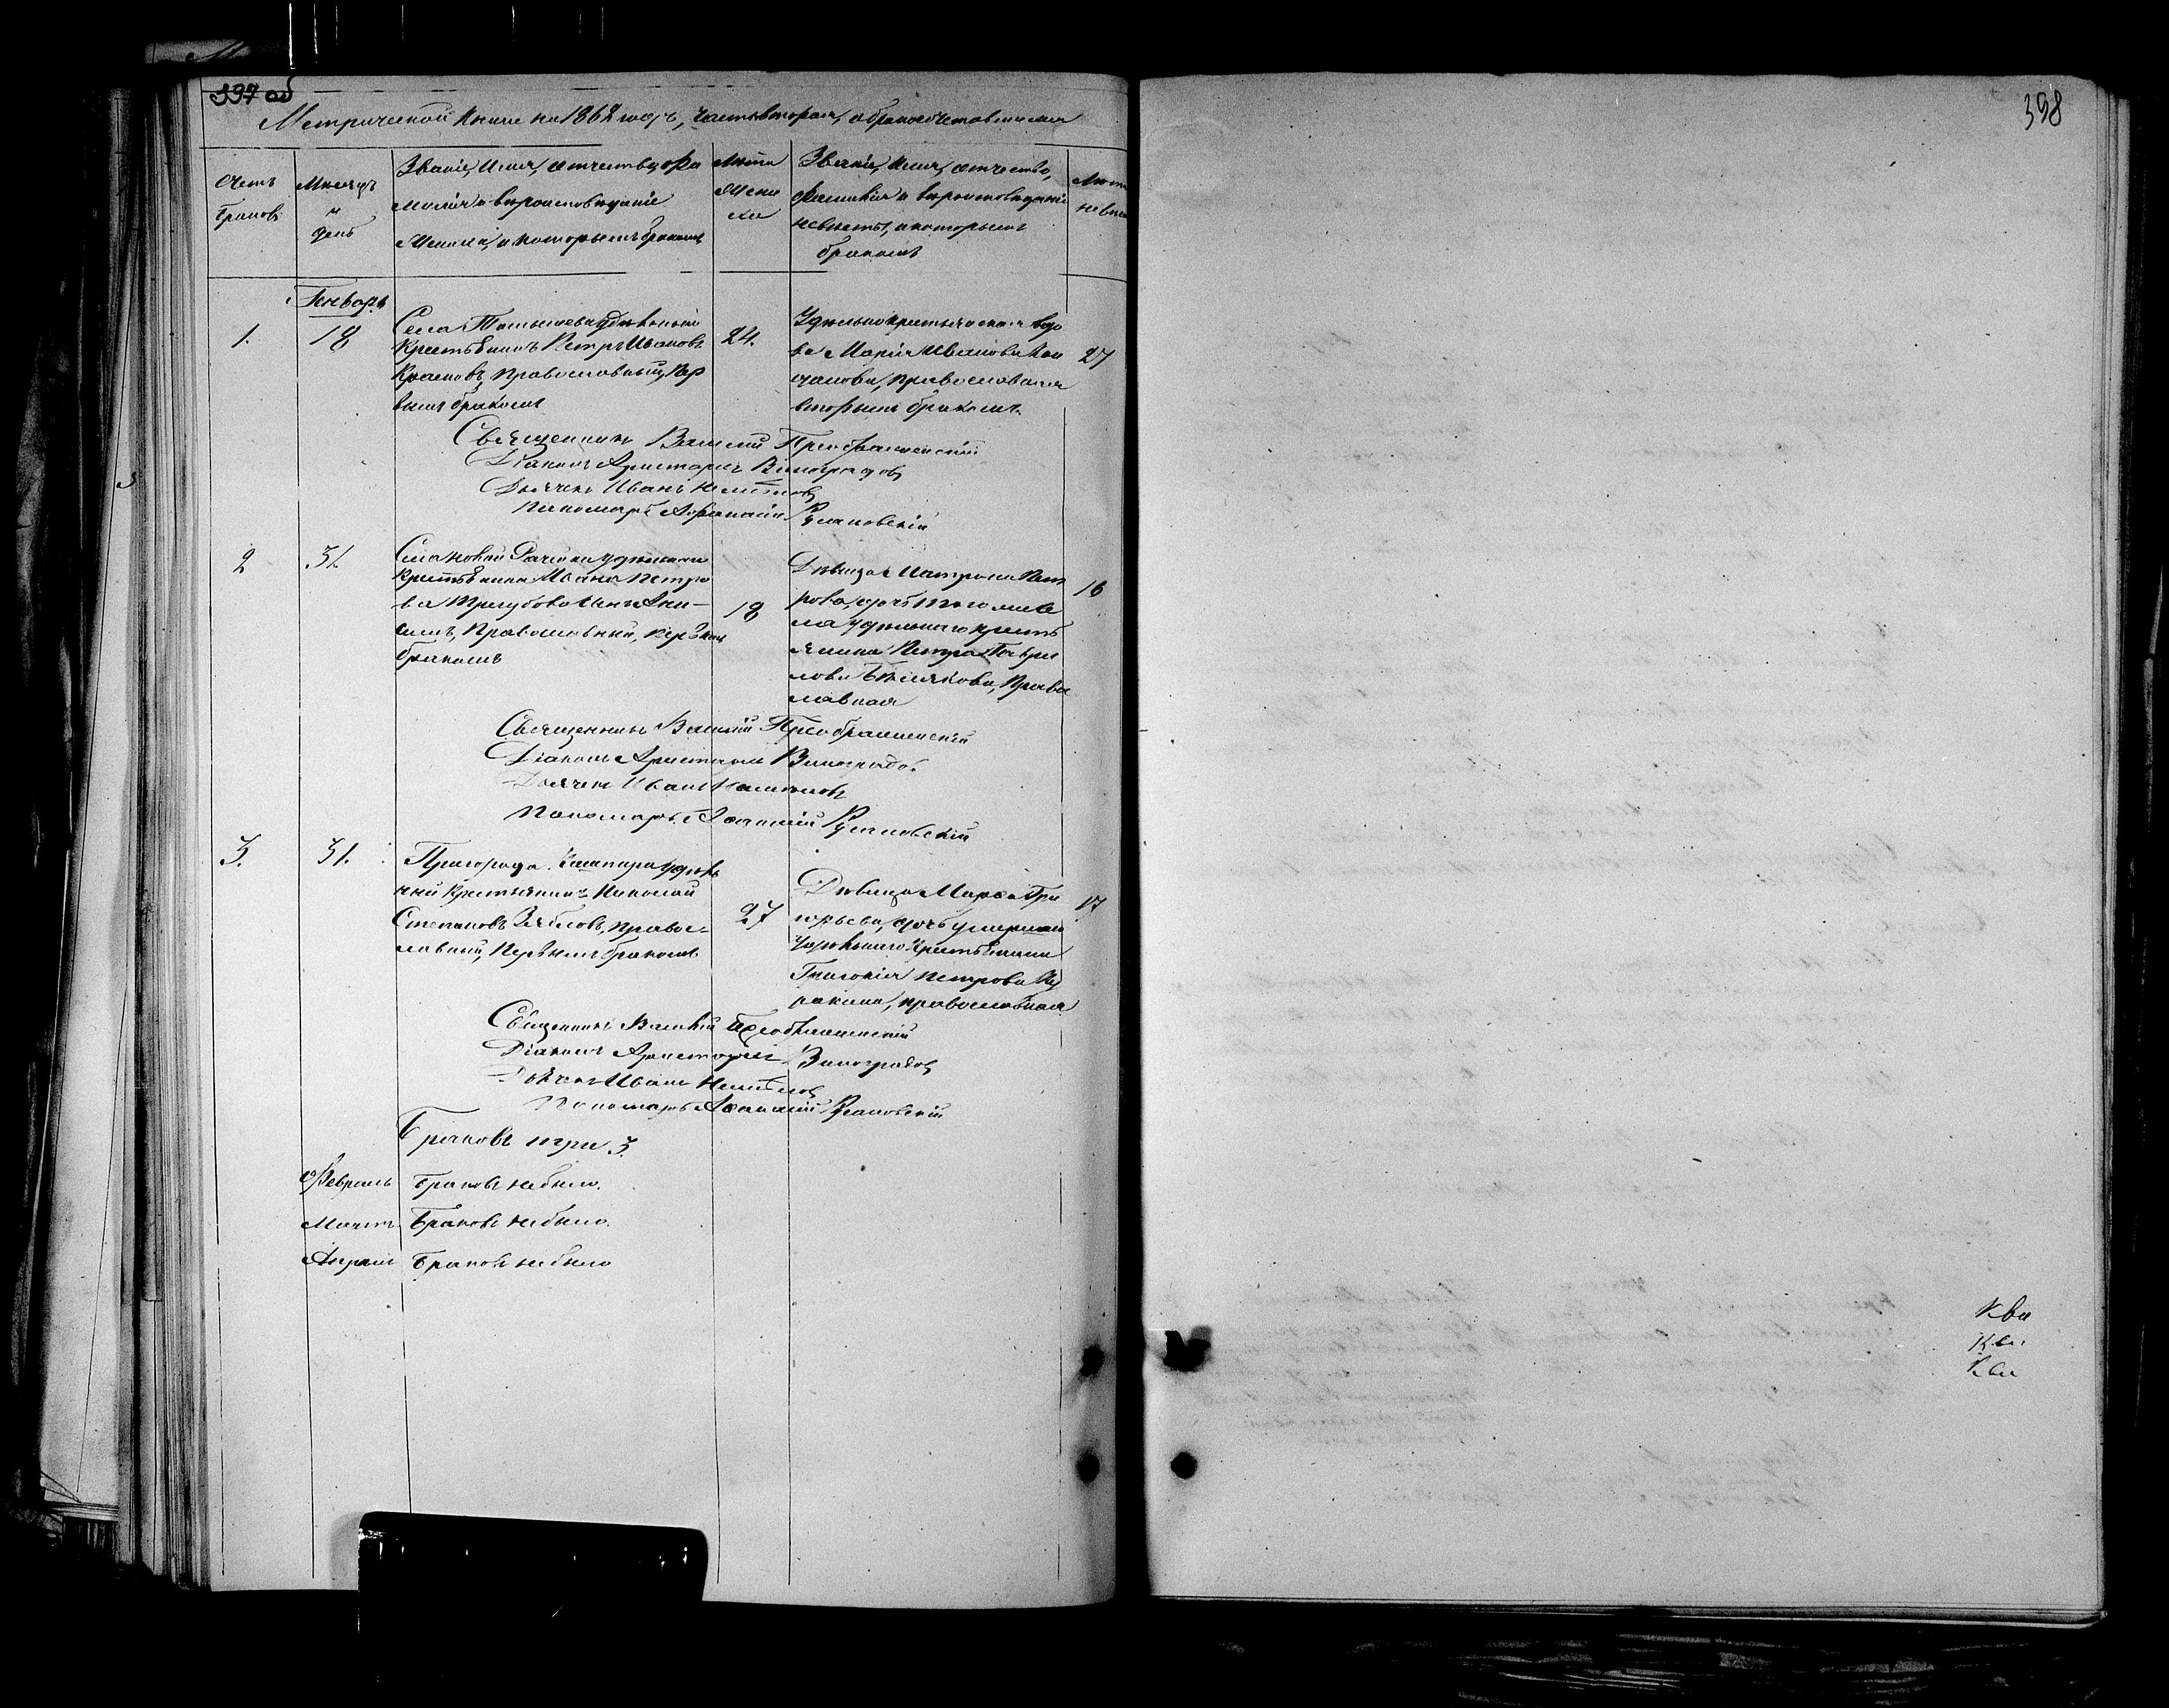 397 об
Метрической книги на 1862 годъ, часть вторая, о бракосочетавшихся
Счетъ браковъ
Месяцъ и день
Званіе, имя, отчество, фа
милія и вѣроисповѣданіе
жениха, и которымъ бракомъ
Лѣта
жени
ха
Званіе, имя, отчество,
фамилія и вѣроисповѣданіе
невѣсты, и которымъ
бракомъ
Лета
невѣсты
Генварь
1.
18
Села удѣльный
крестьянинъ Петръ Ивановъ
православный, пер
вымъ бракомъ
24.
Удельнокрестьянская вдо
ва Марія Иванова
православная
вторымъ бракомъ.
27
Священникъ Василій Преображенскій
Діаконъ Аристархъ Виноградовъ
Дьячекъ Иванъ
Пономарь Афанасій Русановскій
2
31
Села Новой Рачейки удельнаго
крестьянина Ивана Петро
ва Трегубова сынъ Ани-
симъ, православный, первымъ
бракомъ
18
Девица Матрона Пет
рова, дочь того же се
ла удельнаго кресть
янина Петра Гаври
лова православная
16
Священникъ Василій Преображенскій
Діаконъ Аристархъ Виноградовъ
Дьячекъ Иванъ
Пономарь Афанасій Русановскій
3.
31.
Пригорода Кашпира удель
ный крестьянинъ Николай
Степановъ Зябловъ, право-
славный, первымъ бракомъ
27
Дѣвица Марѳа Гри
горьева, дочь умершаго
удѣльнаго крестьянина
Григорія Петрова
православная
17
Священникъ Василій Преображенскій
Діаконъ Аристархъ Виноградовъ
Дьячекъ Иванъ
Пономарь Афанасій Русановскій
Браковъ три 3.
Февраль Браковъ небыло.
Мартъ Браковъ небыло.
Апрель Браковъ небыло
398